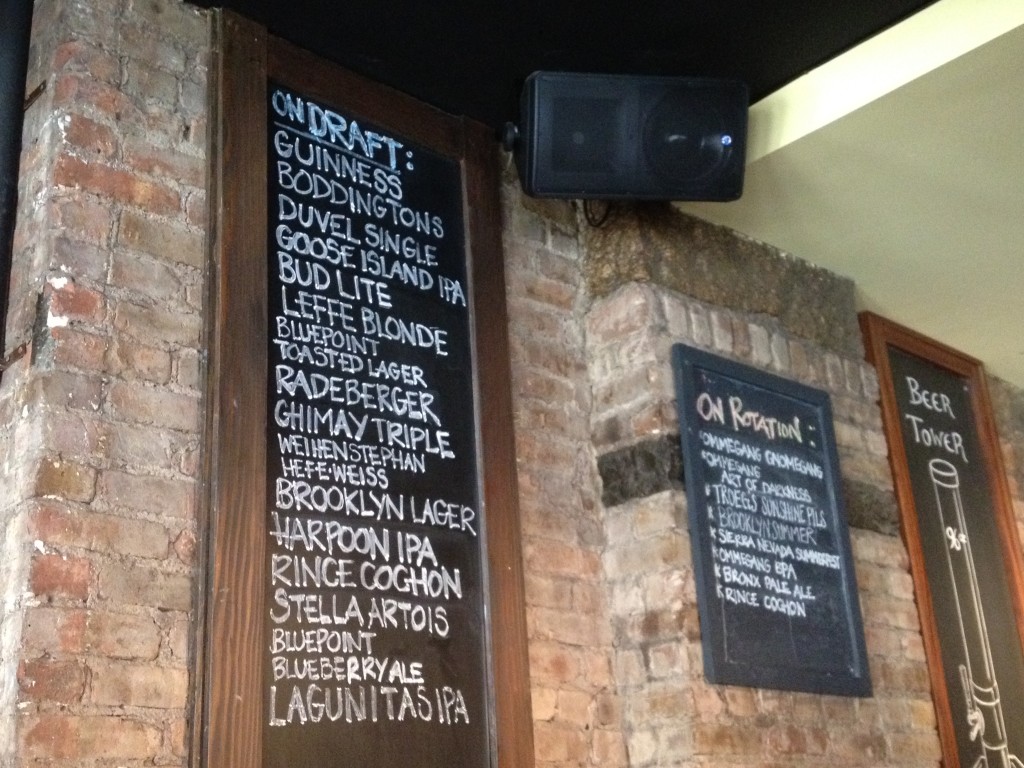 ON DRAFT:
GUINNESS
BODDINGTONS
DUVEL SINGLE
GOOSE ISLAND IPA
BUD LITE
LEFFE BLONDE
BLUEPOINT
TOASTED LAGER
RADEBERGER
CHIMAY TRIPLE
WEIHENSTEPHAN
HEFE-WEISS
BROOKLYN LAGER
HARPOON IPA
RINCE COCHON
STELLA ARTOIS
BLUEPOINT
BLUEBERRY ALE
LAGUNITAS IPA
ON ROTATION:
*OMMEGANG GNOMEGANG
*OMMEGANG
ART OF DARKNESS
*TROEGS SUNSHINE PILS
*BROOKLYN SUMMER
*SIERRA NEVADA SUMMERFEST
*OMMEGANG BPA
*BRONX PALE ALE
*RINCE COCHON
BEER
TOWER